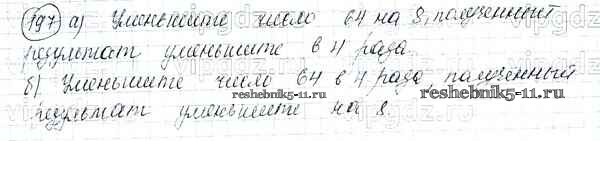 197 а) Уменьшите число 64 на 8, полученный
результат уменьшите в 4 раза.
б) Уменьшите число 64 в 4 раза, полученный
результат уменьшите на 8.
reshebnik5-11.ru
reshebnik5-11.ru